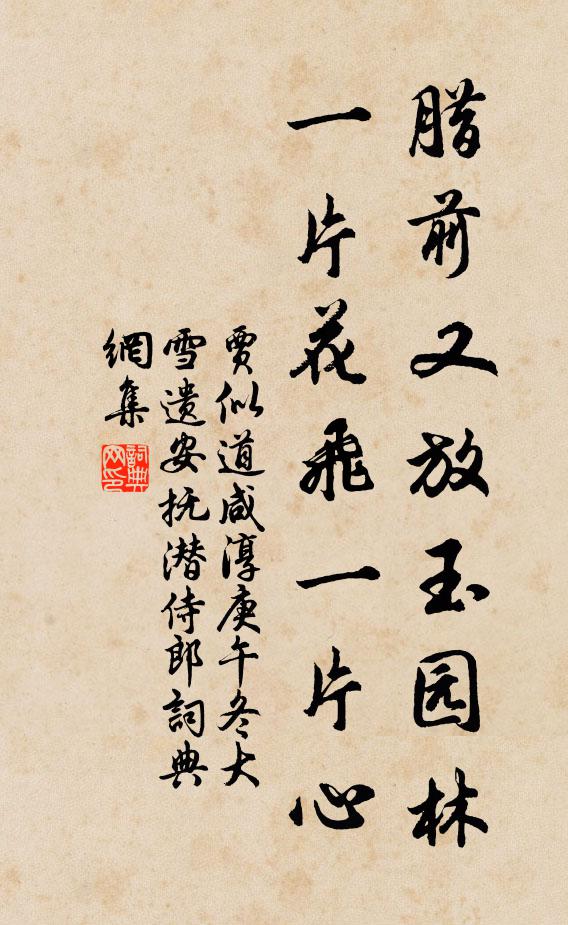 腊前又放玉园林
一片花飛一片心
賈似道咸淳庚午冬大
雪遗安抚潜侍郎詞典
網集
詞典网印